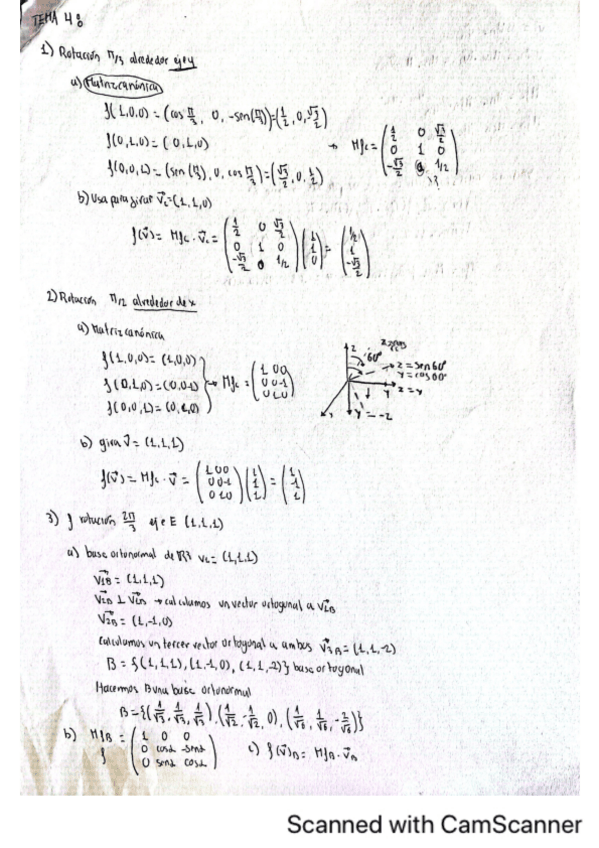 TEMA 4:
1) Rotación π/3 alrededor eje y
a) Matriz canónica
f(1,0,0) = (cos π/3, 0, -sen(π/3)) = (1/2, 0, √3/2)
f(0,1,0) = (0,1,0)
f(0,0,1) = (sen(π/3), 0, cos π/3) = (√3/2, 0, 1/2)
→ Mfc = (1/2 0 √3/2
0 1 0
-√3/2 0 1/2)
b) Usa para girar v₁ = (1,1,0)
f(v) = Mfc · v₁ = (1/2 0 √3/2
0 1 0
-√3/2 0 1/2) (1 1 0) = (1/2 1 -√3/2)
2) Rotación π/2 alrededor de x
a) Matriz canónica
f(1,0,0) = (1,0,0)
f(0,1,0) =
f(0,0,1) =
→ Mfc = (1 0 0
0 0 -1
0 1 0)
z
60°
z = sen 60°
y
b) gira v = (1,1,1)
f(v) = Mfc · v = (1 0 0
0 0 -1
0 1 0) (1 1 1) = (1 -1 1)
3) f rotación 2π/3 eje E (1,1,1)
a) base ortonormal de R3 v₁ = (1,1,1)
v1B = (1,1,1)
v2B ⊥ → calculamos un vector octogonal a v1B
v2B = (1,-1,0)
Calculamos un tercer vector ortogonal a ambos v3B = (1,1,-2)
B = {(1,1,1), (1,-1,0), (1,1,-2)} base ortogonal
Hacemos B una base ortonormal
B = {(1/√3, 1/√3, 1/√3), (1/√2, -1/√2, 0), (1/√6, 1/√6, -2/√6)}
b) MfB = (1 0 0
0 cosα -senα
0 senα cosα)
c) f(v)B = MfB · vB
Scanned with CamScanner